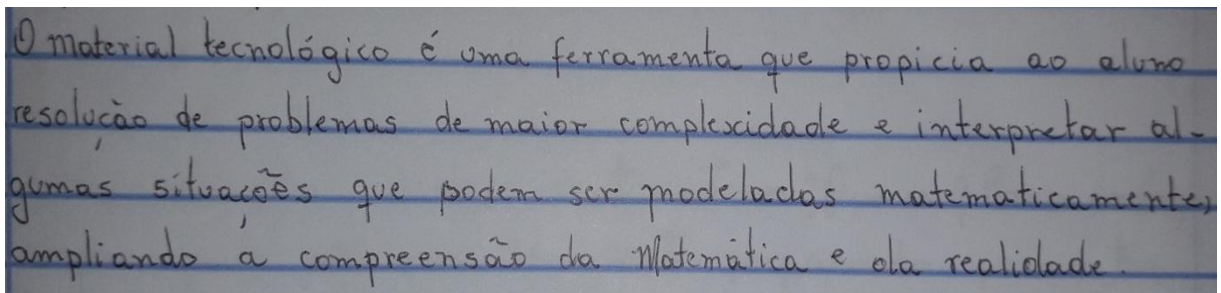 O material tecnológico é uma ferramenta que propicia ao aluno
resolução de problemas de maior complexidade e interpretar al-
gumas situações que podem ser modeladas matematicamente,
ampliando a compreensão da Matemática e da realidade.